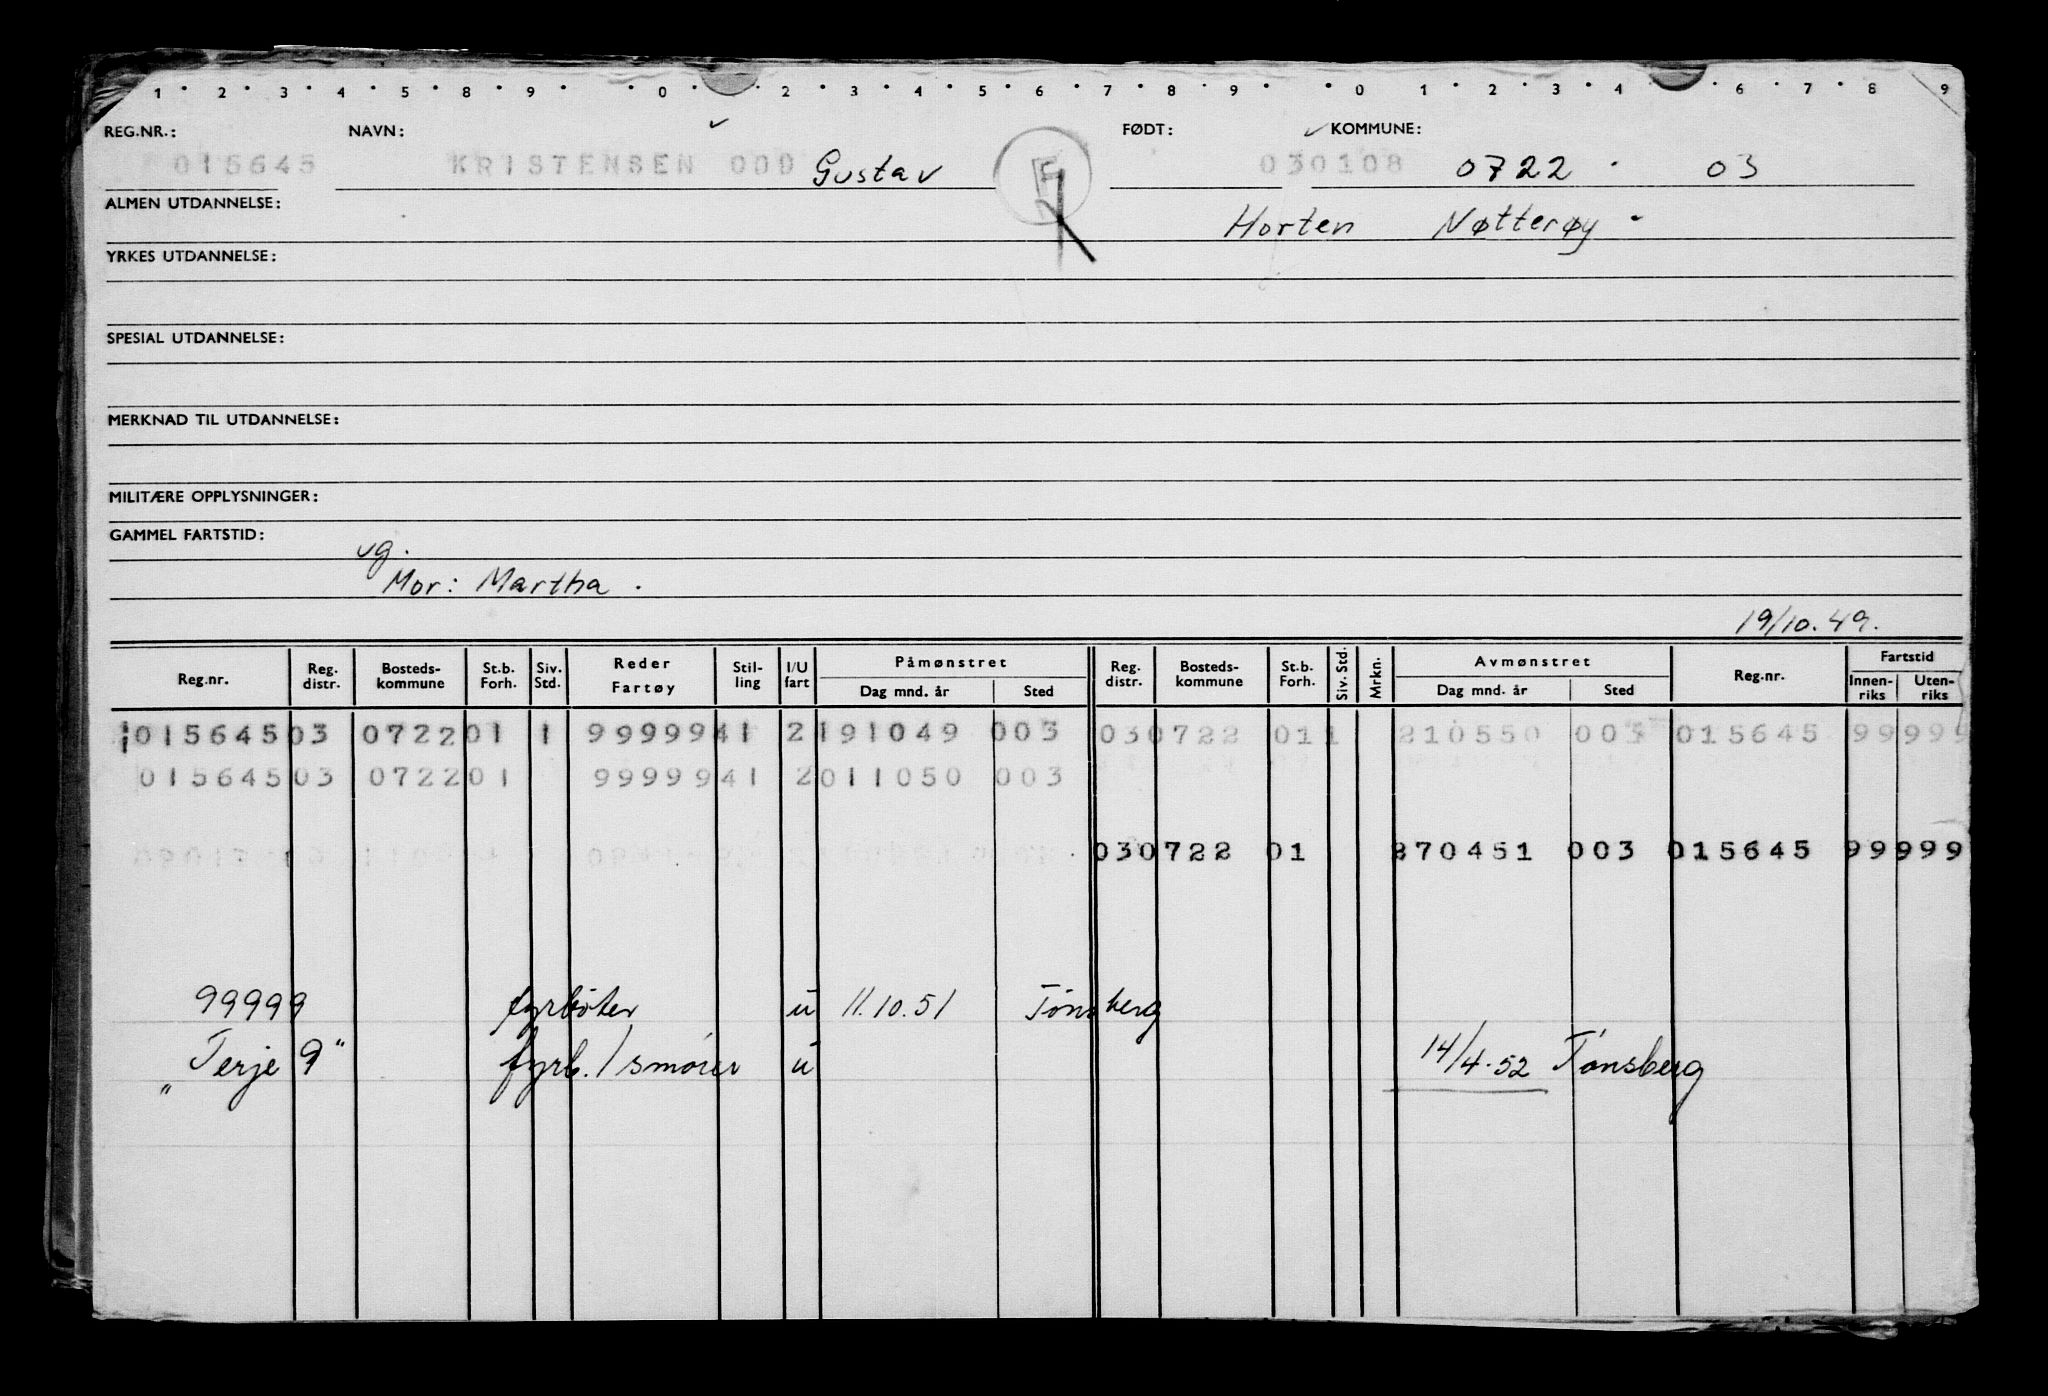 1 · 2 · 3 · 4 · 5 · 8 · 9 · · 0 · 2 · 3 · 4 · 5 · 6 · 7 · 8 · 9 · · 0 1 · 2 · 3 · 4 · · 6 · 7 · 8 9
REG.NR.: NAVN: FØDT: KOMMUNE:
015645 KRISTENSEN ODD Gustav 030108 0722 · 03
ALMEN UTDANNELSE: Horten Nøtterøy
YRKES UTDANNELSE:
SPESIAL UTDANNELSE:
MERKNAD TIL UTDANNELSE:
MILITÆRE OPPLYSNINGER:
GAMMEL FARTSTID:
ug.
Mor: Martha .
19/10.49.
Reg.nr. Reg. distr. Bosteds-kommune St.b. Forh. Siv. Std. Reder Fartøy Stil-ling I/U fart Påmønstret Dag mnd. år Sted Reg. distr. Bosteds-kommune St.b. Forh. Siv. Std. Mrkn. Avmønstret Dag mnd. år Sted Reg.nr. Fartstid Innen-riks Uten-riks
015645 03 0722 01 1 99999 41 2 191049 003 03 0722 01 1 210550 003 015645 99 999
015645 03 0722 01 99999 41 2 011050 003
03 0722 01 270451 003 015645 99 999
99999 fyrbøter u 11.10.51 Tønsberg
„Terje 9" fyrb./smører u 14/4.52 Tønsberg